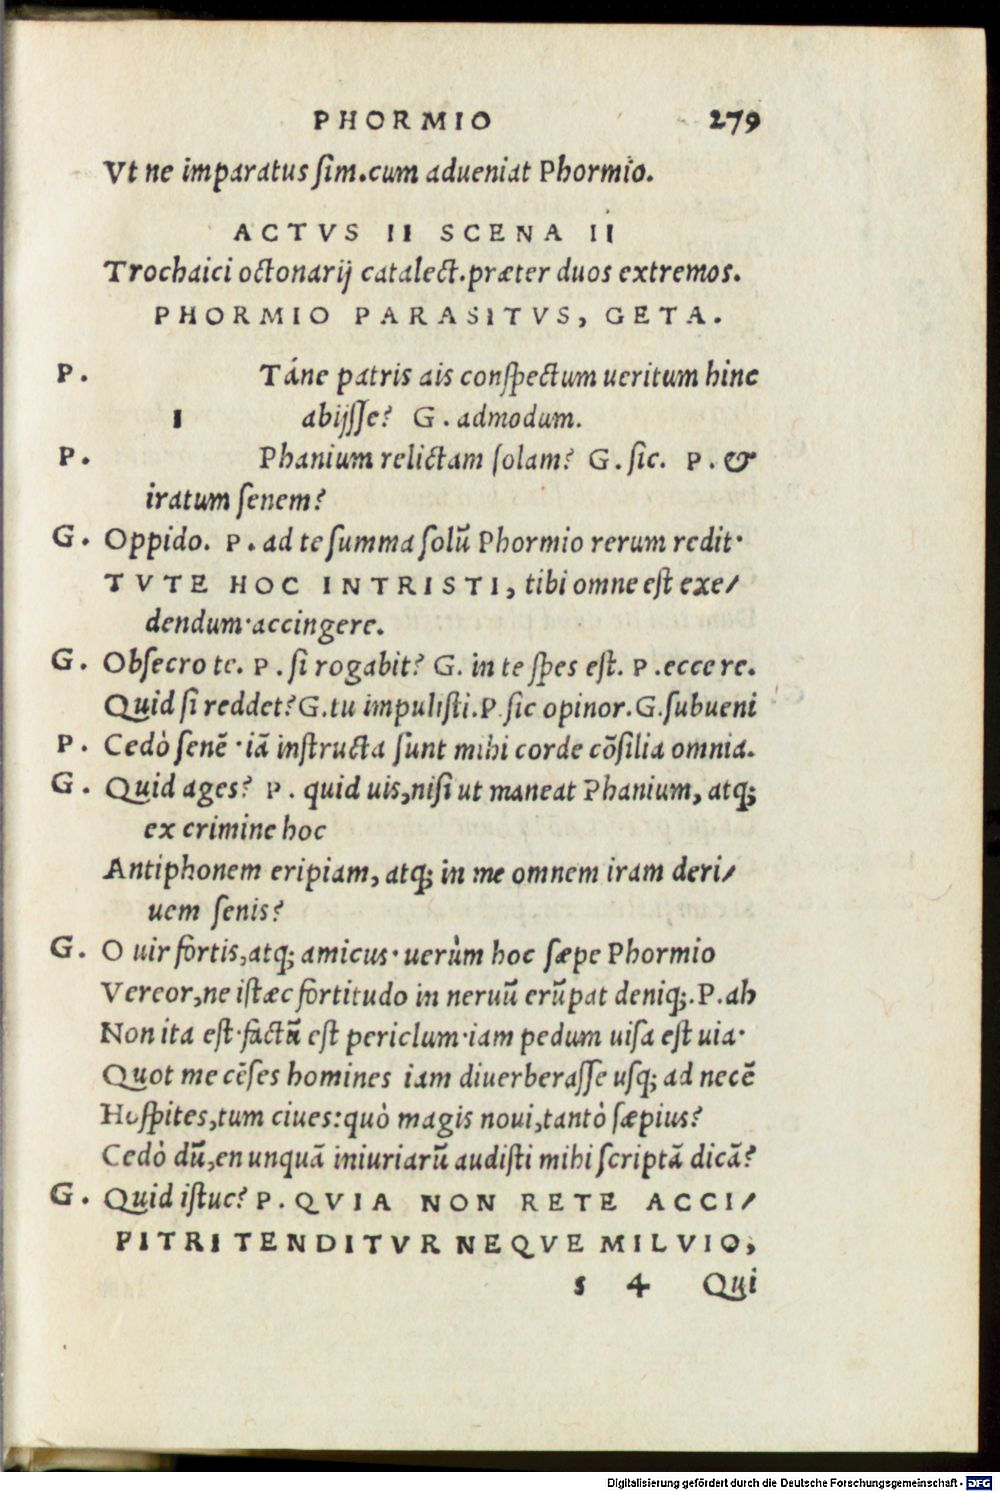 PHORMIO 279
Vt ne imparatus ſim.cum adueniat Phormio.
ACTVS II SCENA II
Trochaici octonarij catalect.præter duos extremos.
PHORMIO PARASITVS, GETA.
P. Táne patris ais conſpectum ueritum hinc
I abijſſe? G. admodum.
P. Phanium relictam ſolam? G. ſic. P. &
iratum ſenem?
G. Oppido. P. ad te ſumma ſolū Phormio rerum redit·
TVTE HOC INTRISTI, tibi omne eſt exe/
dendum·accingere.
G. Obſecro te. P. ſi rogabit? G. in te ſpes eſt. P. eccere.
Quid ſi reddet?G.tu impuliſti.P.ſic opinor.G.ſubueni
P. Cedò ſenē·iā inſtructa ſunt mihi corde cōſilia omnia.
G. Quid ages? P. quid uis,niſi ut maneat Phanium, atq;
ex crimine hoc
Antiphonem eripiam, atq; in me omnem iram deri/
uem ſenis?
G. O uir fortis,atq; amicus·uerùm hoc ſæpe Phormio
Vereor,ne iſtæc fortitudo in neruū erūpat deniq;.P.ah
Non ita eſt·factū eſt periclum·iam pedum uiſa eſt uia·
Quot me cēſes homines iam diuerberaſſe uſq; ad necē
Hoſpites,tum ciues:quò magis noui,tantò ſæpius?
Cedò dū,en unquā iniuriarū audiſti mihi ſcriptā dicā?
G. Quid iſtuc? P. QVIA NON RETE ACCI/
PITRI TENDITVR NEQVE MILVIO,
s 4 Qui
Digitalisierung gefördert durch die Deutsche Forschungsgemeinschaft - DFG